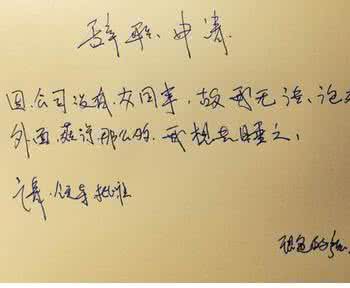 辞职申请
因公司没有女同事,故我无法
外面菇凉那么多,我想去睡之,
请领导批准